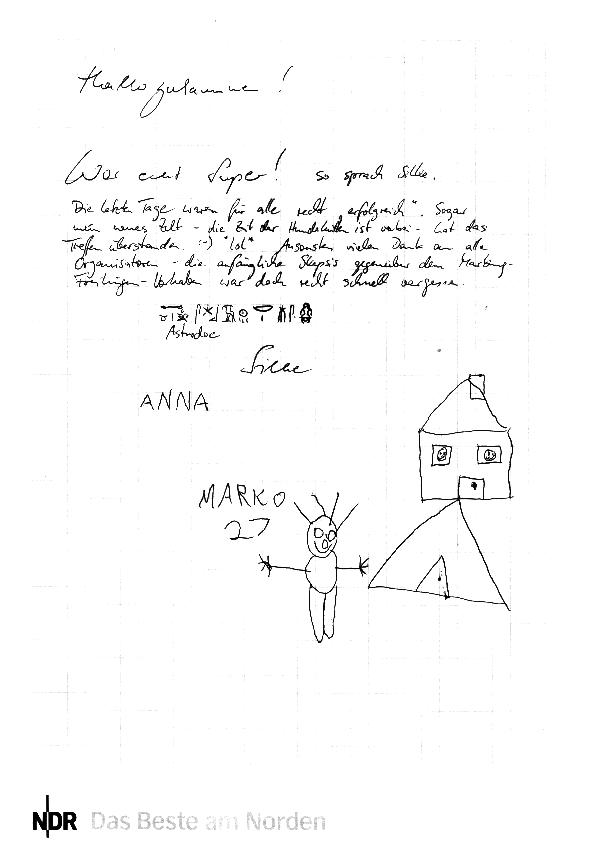 Hallo zusammen!
War echt Super! so sprach Silke.
Die letzten Tage waren für alle recht "erfolgreich". Sogar
mein neues Zelt - die Zeit der Hundehütten ist vorbei - hat das
Treffen überstanden. :-) *lol* Ansonsten vielen Dank an alle
Organisatoren - die anfängliche Skepsis gegenüber dem
Vorhaben war doch recht schnell vergessen.
Astrodoc
Silke
ANNA
MARKO
27
NDR Das Beste am Norden